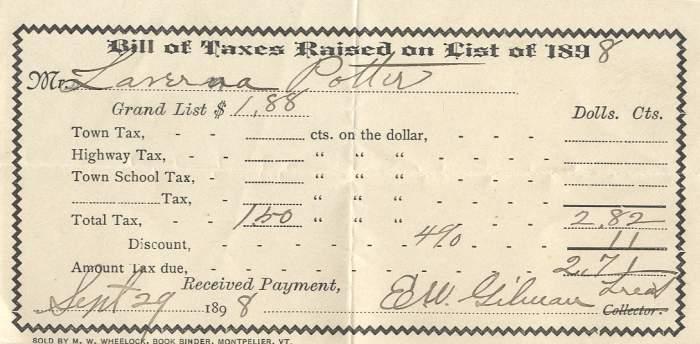 Bill of Taxes Raised on List of 1898
Mr. Laverna Potter
Grand List $ 1,88
Dolls. Cts.
Town Tax, - - cts. on the dollar, - - -
Highway Tax, - - " " " - - -
Town School Tax, - " " " - - -
Tax, - " " " - - -
Total Tax, - - 1.50 " " " - - - 2,82
Discount, - - - - - - - 4% - - - 11
Amount Tax due, - - - - - - - - - - 2,71
Received Payment,
Sept 29 1898 E.W. Gilman Treas
Collector.
SOLD BY M. W. WHEELOCK, BOOK BINDER, MONTPELIER, VT.